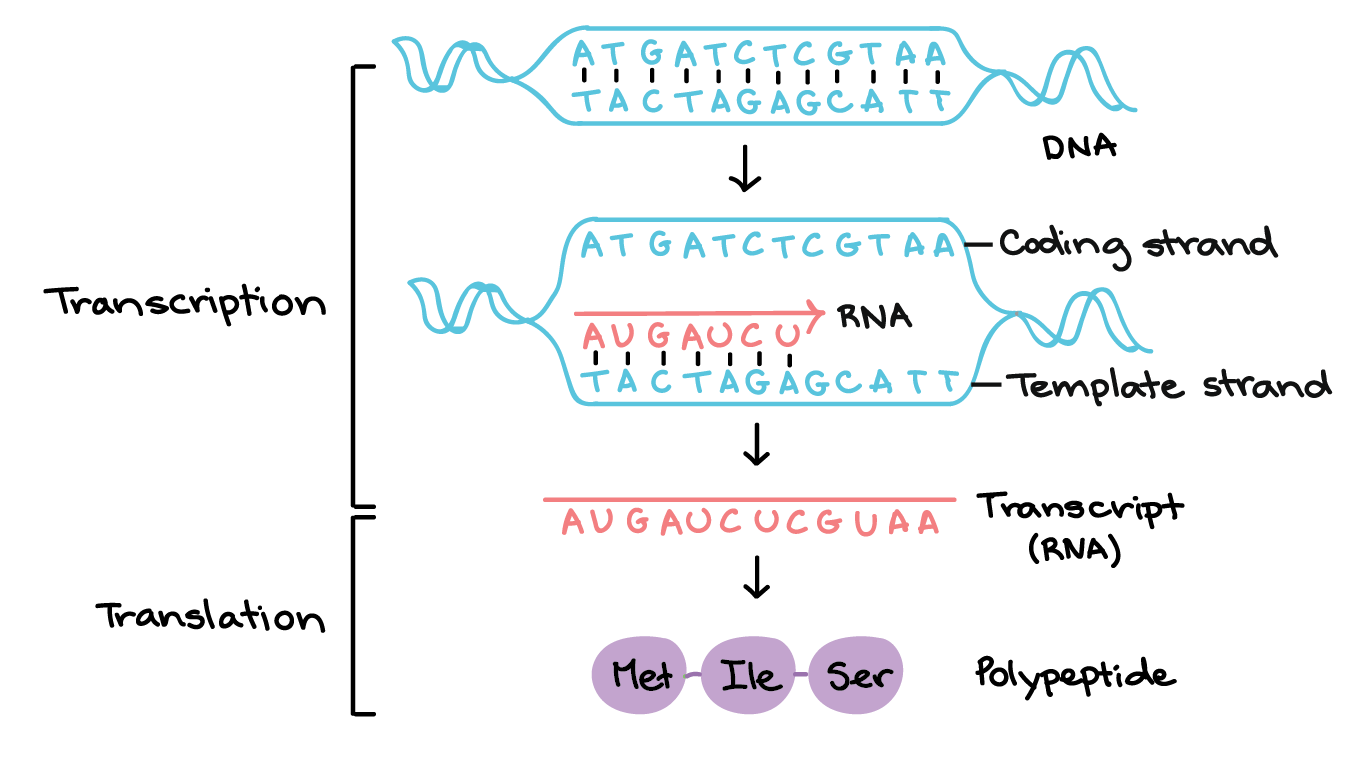 A T G A T C T C G T A A
T A C T A G A G C A T T
DNA
A T G A T C T C G T A A
Coding strand
Transcription
RNA
A U G A U C U
T A C T A G A G C A T T
Template strand
A U G A U C U C G U A A
Transcript
(RNA)
Translation
Met Ile Ser
Polypeptide